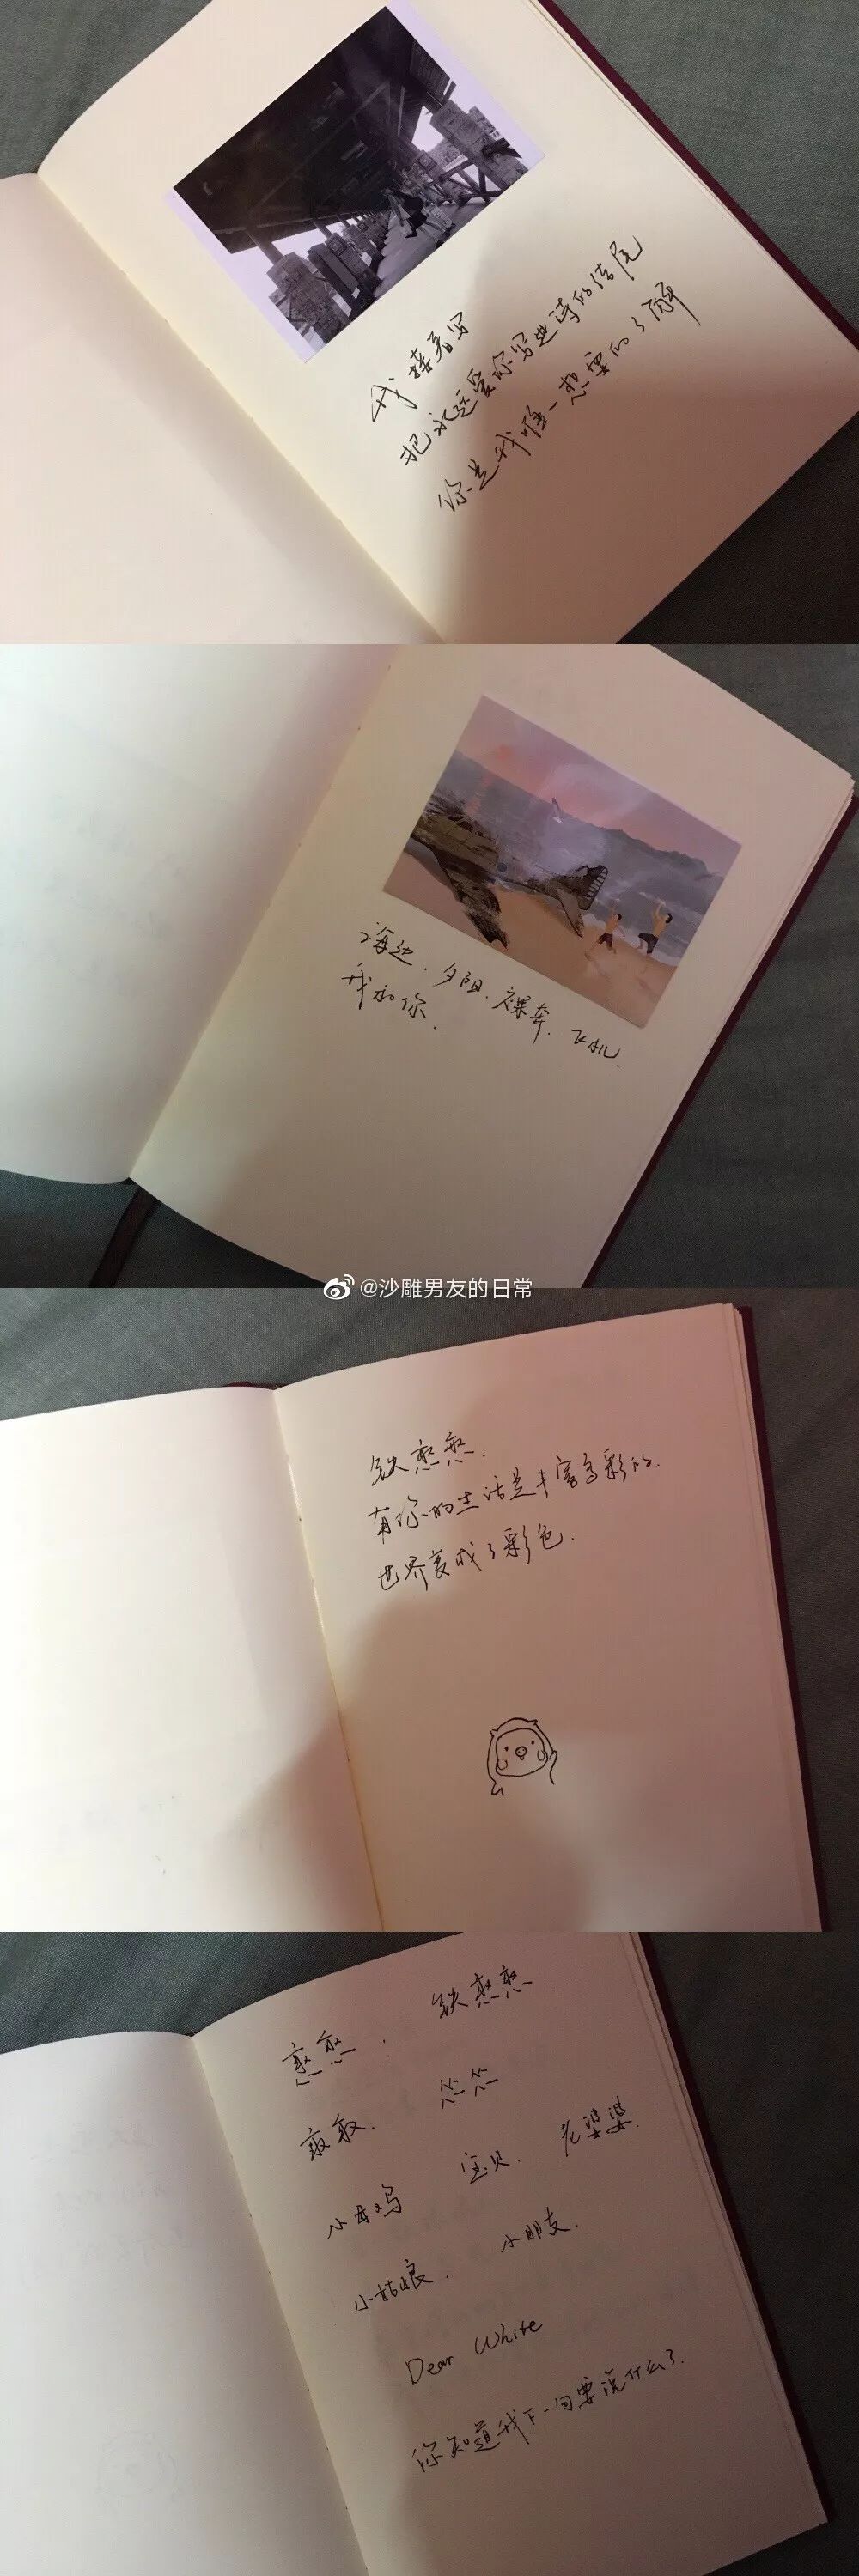 我接着写
把永远爱你写进诗的结尾
你是我唯一想要的了解
海边、夕阳、裸奔、飞机、
我和你、
@沙雕男友的日常
铁憨憨、
有你的生活是丰富多彩的、
世界变成了彩色、
憨憨、 铁憨憨
敢敢、 心心
小母鸡 宝贝、 老婆婆、
小姑娘、 小朋友、
Dear White
你知道我下一句要说什么了、